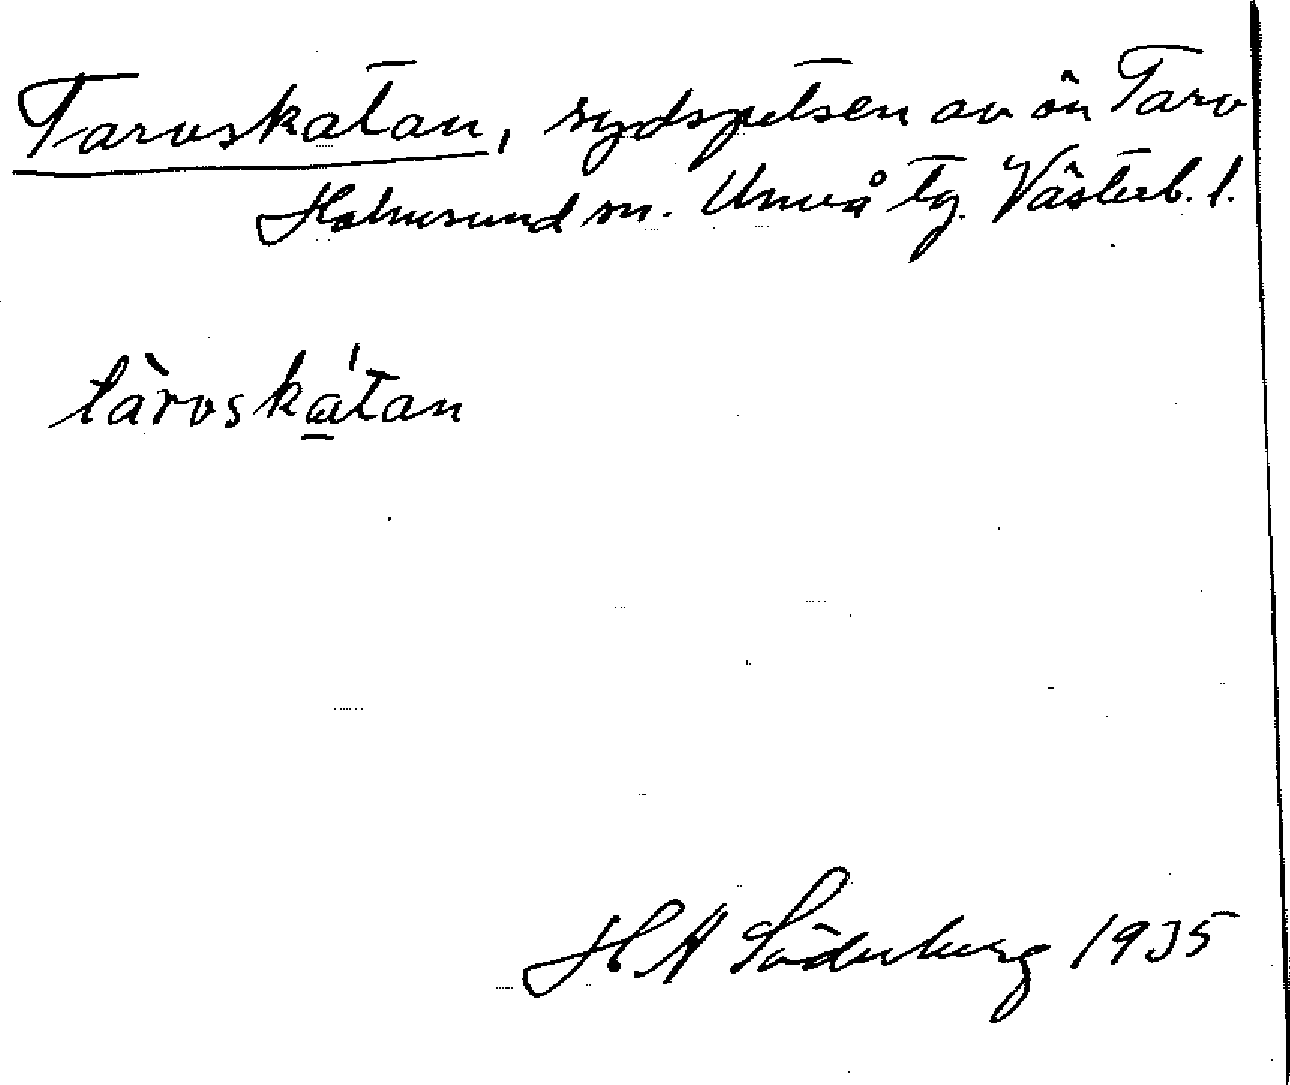 Tarvskatan, sydspetsen av ön Tarv
Holmsund sn. Umeå tg. Västerb. l.
tàrvska̲'tan
H A Söderberg 1935